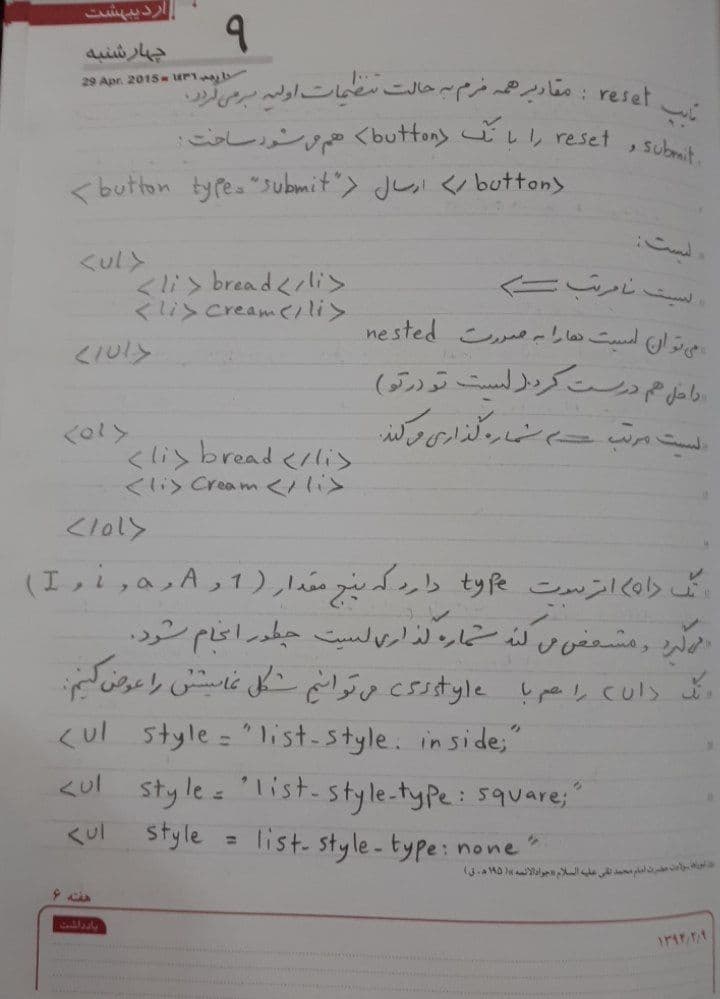 اردیبهشت
۹
چهارشنبه
29 Apr. 2015 ■ ۱۴۳۶
تایپ reset : مقادیر همه فرم به حالت تنظیمات اولیه برمی گردد.
submit و reset را با تگ <button> هم می شود ساخت:
<button type="submit"> ارسال </button>
لیست:
لیست نامرتب <=
<ul>
<li> bread </li>
<li> cream </li>
</ul>
می توان لیست ها را به صورت nested
داخل هم درست کرد. (لیست تو در تو)
لیست مرتب <= شماره گذاری می کند.
<ol>
<li> bread </li>
<li> cream </li>
</ol>
تگ <ol> اتریبیوت type دارد که پنج مقدار (1 و A و a و i و I)
می گیرد و مشخص می کند شماره گذاری لیست چطور انجام شود.
تگ <ul> را هم با css style می توانیم شکل نمایشش را عوض کنیم:
<ul style = "list-style. inside;"
<ul style = "list-style-type: square;"
<ul style = list-style-type: none "
ولادت حضرت امام محمد تقی علیه السلام «جوادالائمه» (۱۹۵ ه‍. ق)
هفته ۶
یادداشت
۱۳۹۴/۲/۹